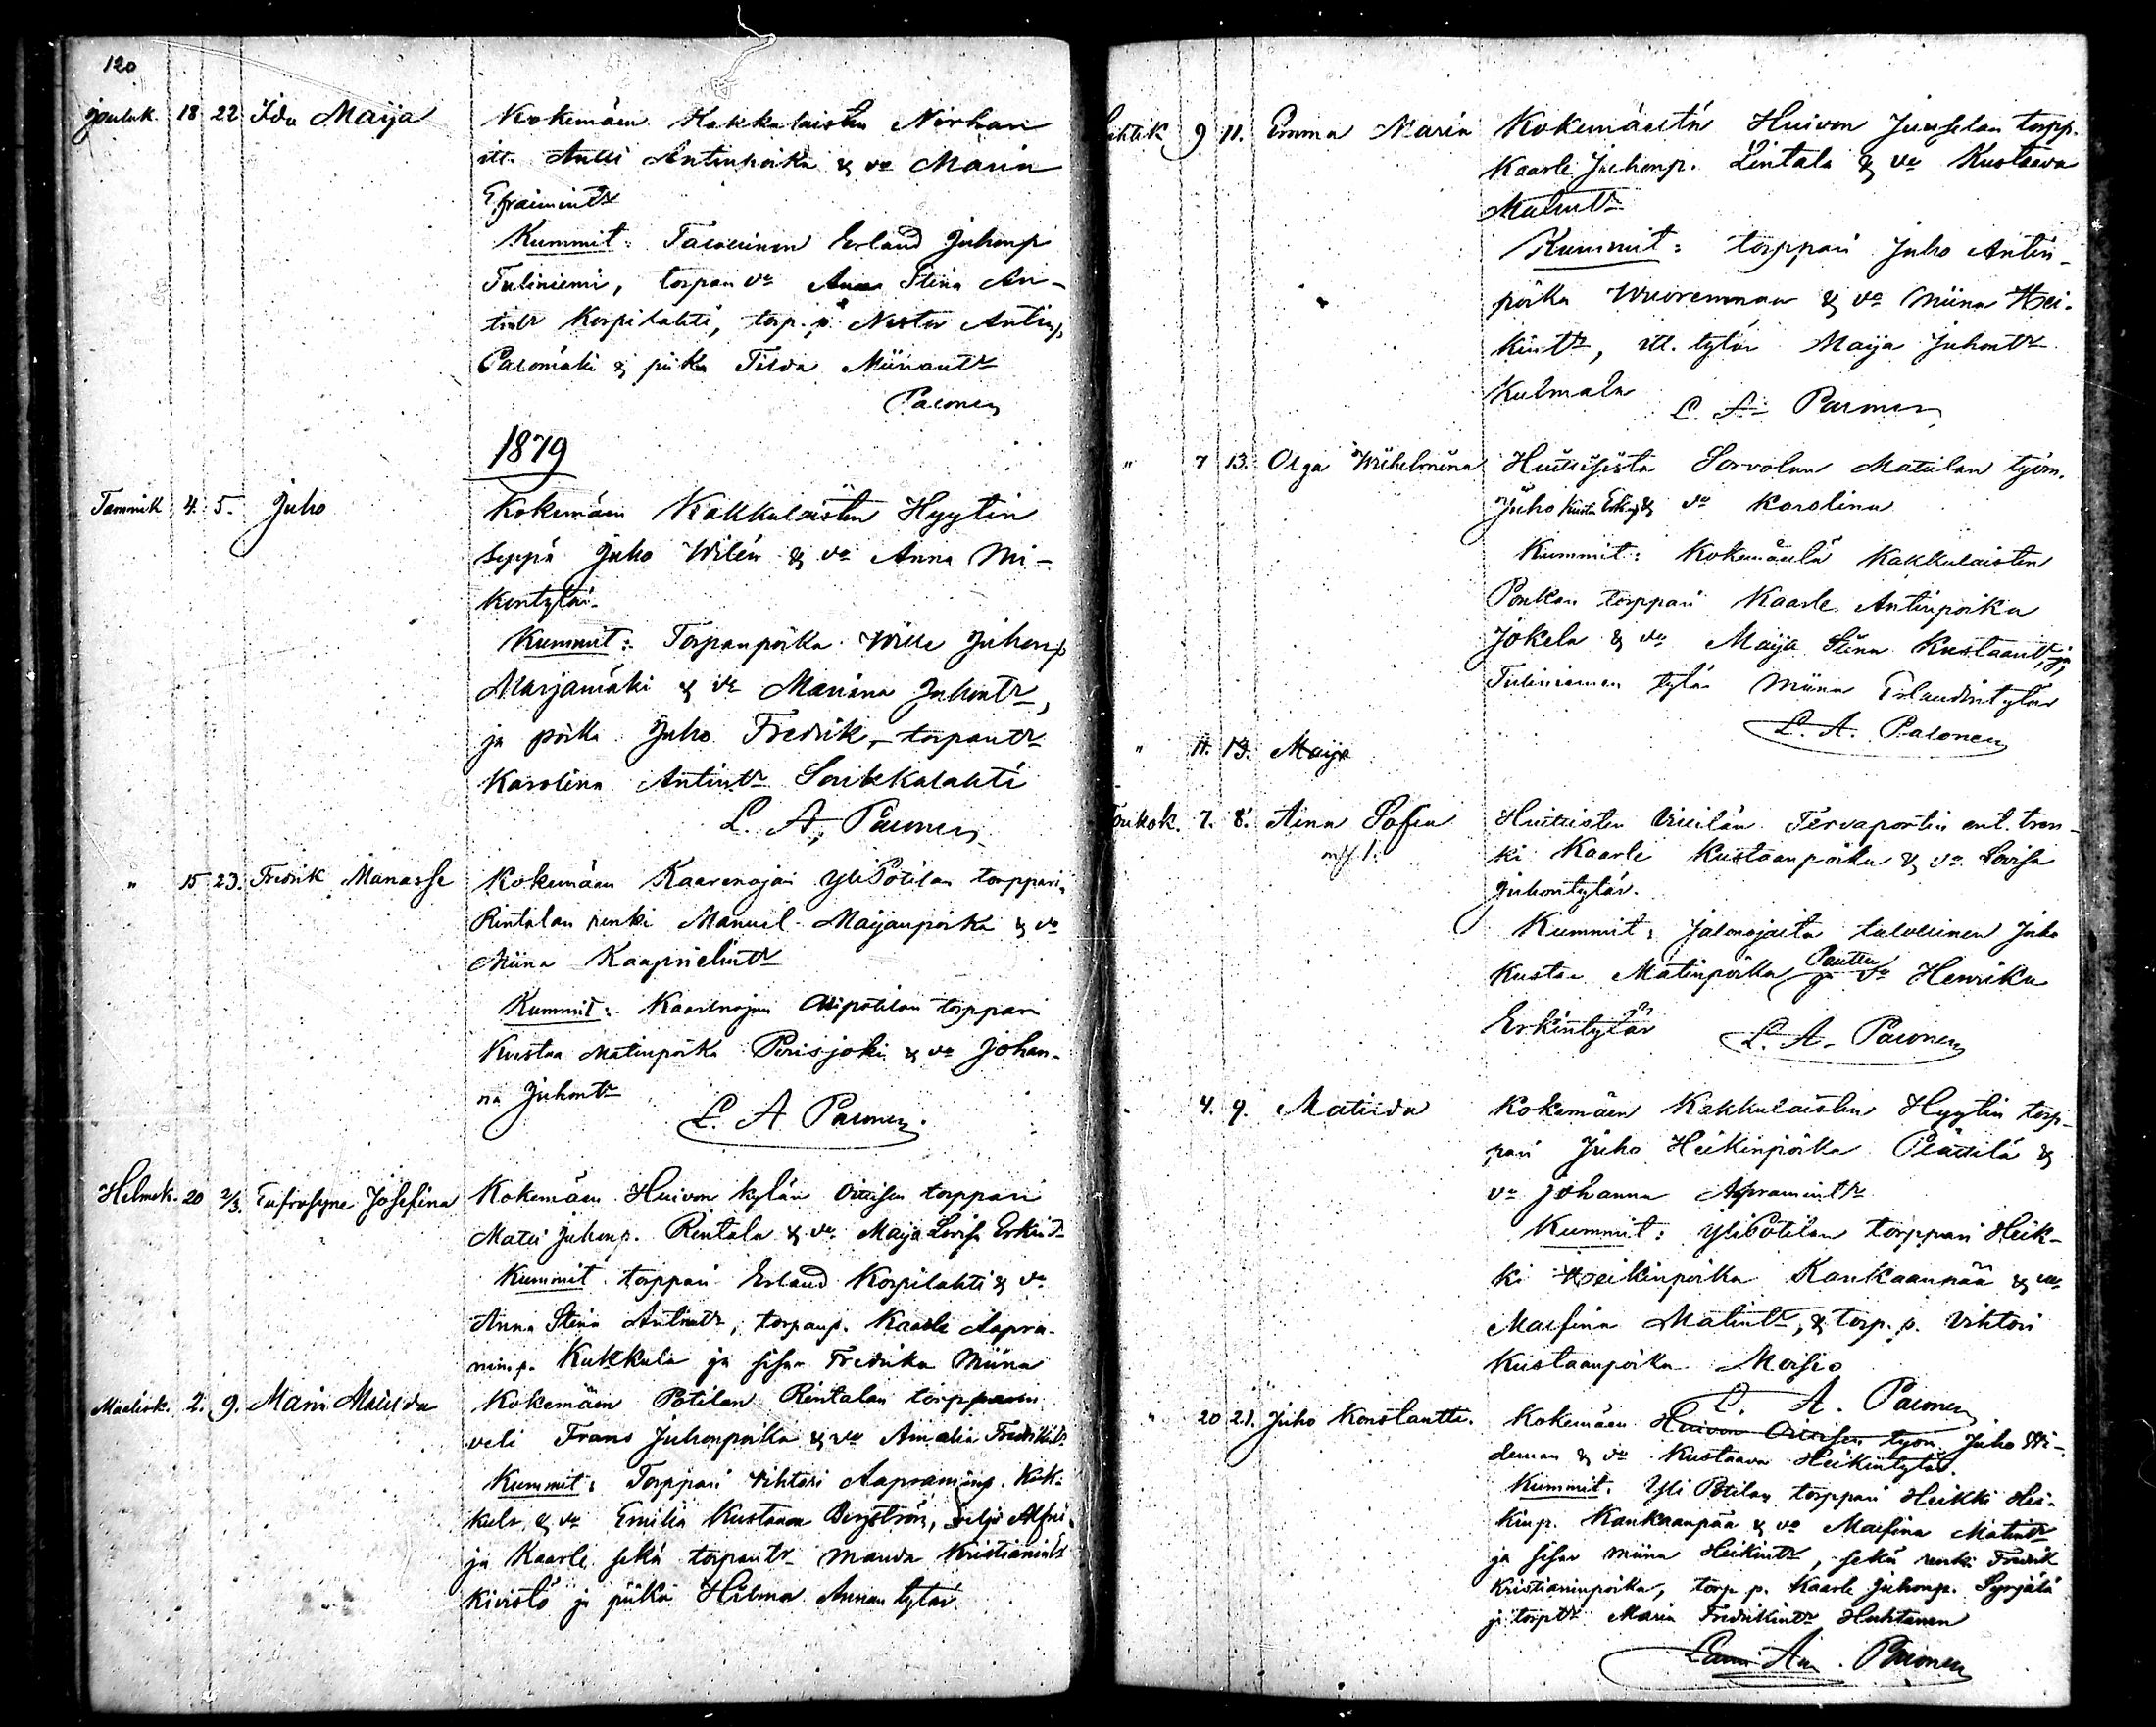 120
Jouluk. 18 22 Ida Maija Kokemäen Kakkulaisten Nirhan
itt. Antti Antinpoika & vo Maria
Efraimintr
Kummit: Talollinen Erland Juhonp
Tuliniemi, torpan vo Anna Stina An-
tintr Korpilahti, torp. p. Nestor Antinp.
Palomäki & piika Tilda Miinantr
Palonen
1879
Tammik 4. 5. Juho Kokemäen Kakkulaisten Hyytin
seppä Juho Wilén & vo Anna Mi-
kontytär.
Kummit: Torpanpoika Wille Juhonp
Marjamäki & vo Mariana Juhontr,
ja poika Juho Fredrik, torpantr
Karolina Antintr Sorkkalahti
L. A. Palonen
" 15 23. Fredrik Manasse Kokemäen Kaarenojan YliPotilan torpparin
Rintalan renki Manuel Maijanpoika & vo
Miina Kaaprielintr
Kummit: Kaarenojan Alipotilan torppari
Kustaa Matinpoika Perisjoki & vo Johan-
na Juhontr
L. A Palonen.
Helmik. 20 2/3. Eufrosyne Josefina Kokemäen Huivon kylän torppari
Matti Juhonp. Rintala & vo Maija Lovisa Erkint
Kummit torppari Erland Korpilahti & vo
Anna Stina Antintr, torpanp. Kaarle Aapra-
minp. Kukkula ja sisar Fredrika Miina
Maalisk. 2. 9. Maria Matilda Kokemäen Potilan Rintalan torpparin
veli Frans Juhonpoika & vo Amalia Fredrikintr
Kummit: Torppari Vihtori Aapraminp. Kuk-
kula & vo Emilia Kustaava Bergström, veljet Alfred
ja Kaarle sekä torpantr Manda Kristianintr
Kivistö ja piika Hilma Annan tytär.
Huhtik 9 11. Emma Maria Kokemäeltä Huivon Juuselan torpp.
Kaarle Juhonp. Lintala & vo Kustaava
Matintr
Kummit: torppari Juho Antin-
poika Wuorenmaa & vo Miina Hei-
kintr, itt. tytär Maija Juhontr
Kulmala L. A. Palonen
" 7 13. Olga Wilhelmiina Huittisista Sorvolan Mattilan työm.
Juho Kusta Erkinp & vo Karolina
Kummit: Kokemäeltä Kakkulaisten
Poukan torppari Kaarle Antinpoika
Jokela & vo Maija Stina Kustaantr, ja
Tuliniemen tytär Miina Erlandintytär
L. A. Palonen
" 11. 13. Maija
Toukok. 7. 8. Aina Sofia Huittisten Tervaportin ent. tren-
ki Kaarle Kustaanpoika & vo Lovisa
Juhontytär.
Kummit: Jalonojalta talollinen Juho
Kustaa Matinpoika ja vo Henrika
Erkintytär L. A. Palonen
4. 9. Matilda Kokemäen Kakkulaisten Hyytin torp-
pari Juho Heikinpoika & 
vo Johanna Apramintr
Kummit: YliPotilan torppari Heik-
ki Heikinpoika Kankaanpää & vo
Maefina Matintr, & torp. p. Vihtori
Kustaanpoika Moisio
L. A. Palonen
" 20 21. Juho Konstantti. Kokemäen Huivon työm. Juho Wi-
deman & vo Kustaava Heikintytär.
Kummit: Yli Potilan torppari Heikki Hei-
kinp. Kankaanpää & vo Maefina Matintr
ja sisar Miina Heikintr, sekä renki Fredrik
Kristianinpoika, torp p. Kaarle Juhonp. Syrjälä
ja torptr Maria Fredrikintr Huhtanen
Palonen